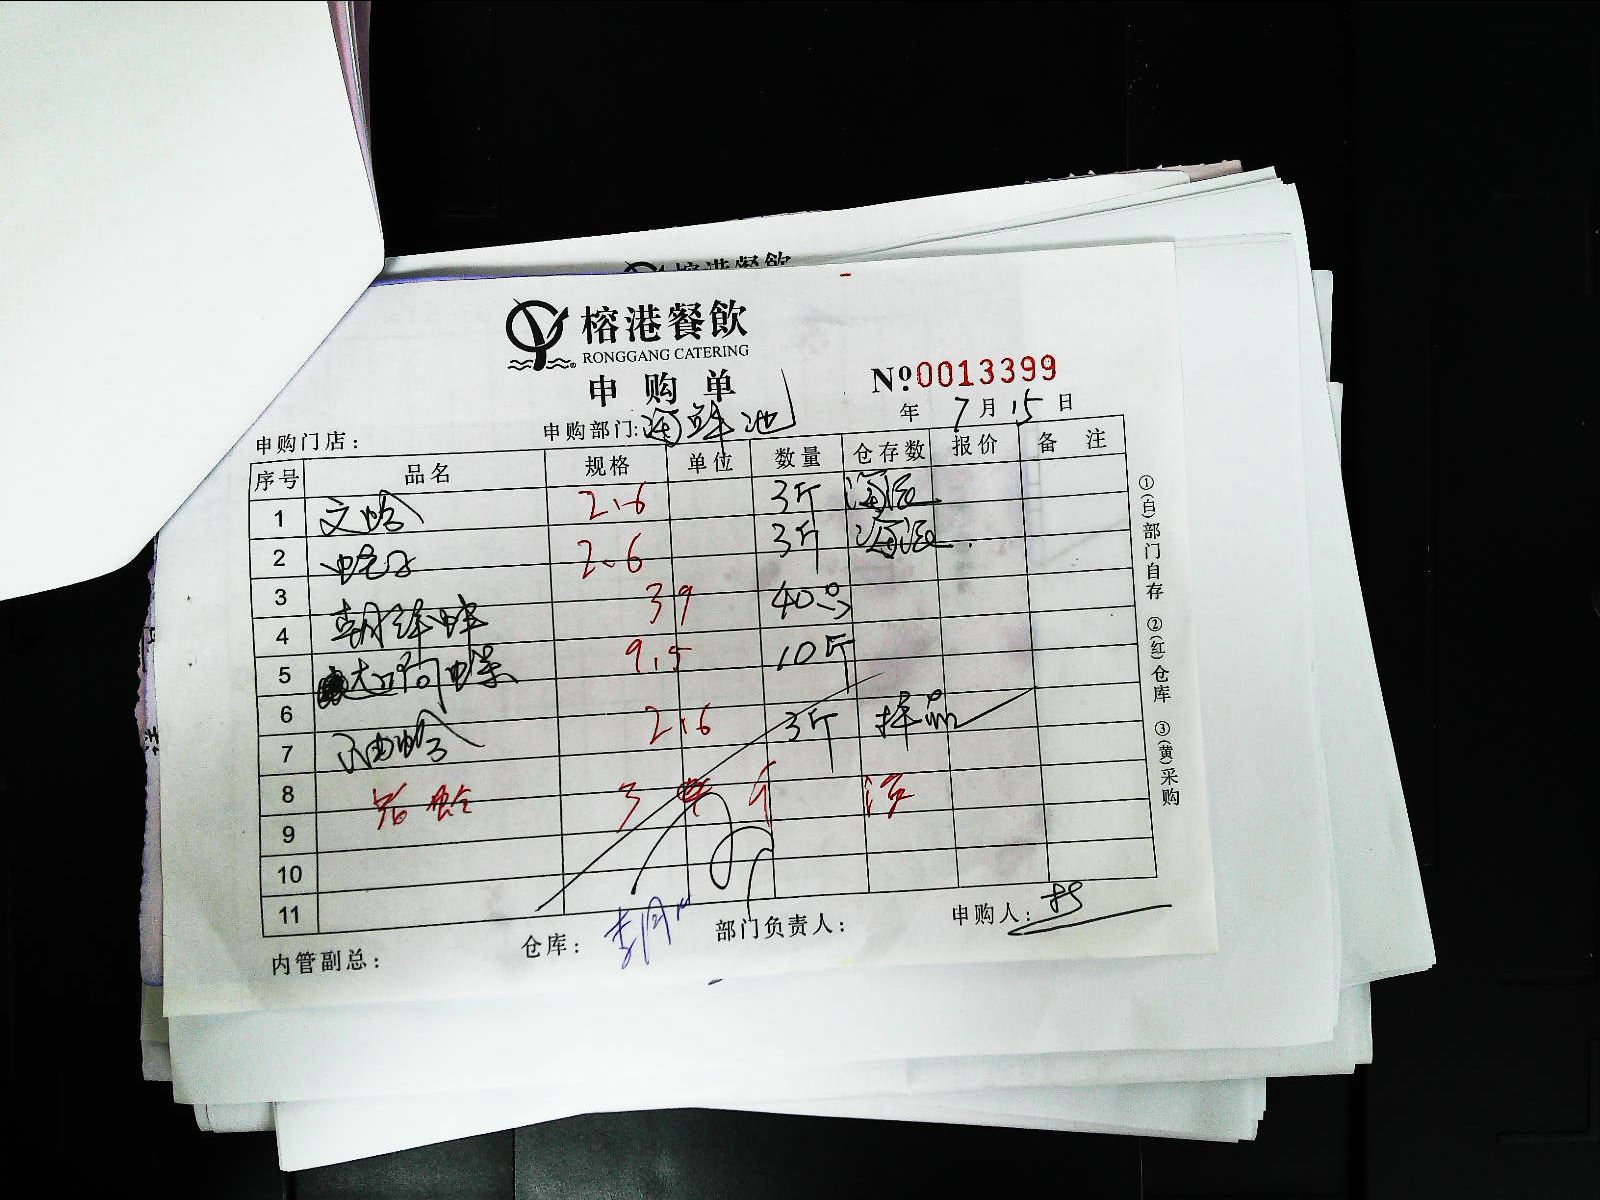 榕港餐飲
榕港餐飲
RONGGANG CATERING
申购单
№ 0013399
年 7月15日
申购门店： 申购部门:海鲜池
序号 品名 规格 单位 数量 仓存数 报价 备注
1 文蛤 2.6 3斤
2 2.6 3斤
3 39 40
4
5 9.5 10斤
6
7 油蛤 2.6 3斤 样品
8 3 斤
9
10
11
内管副总： 仓库： 部门负责人： 申购人：
①(白)部门自存 ②(红)仓库 ③(黄)采购